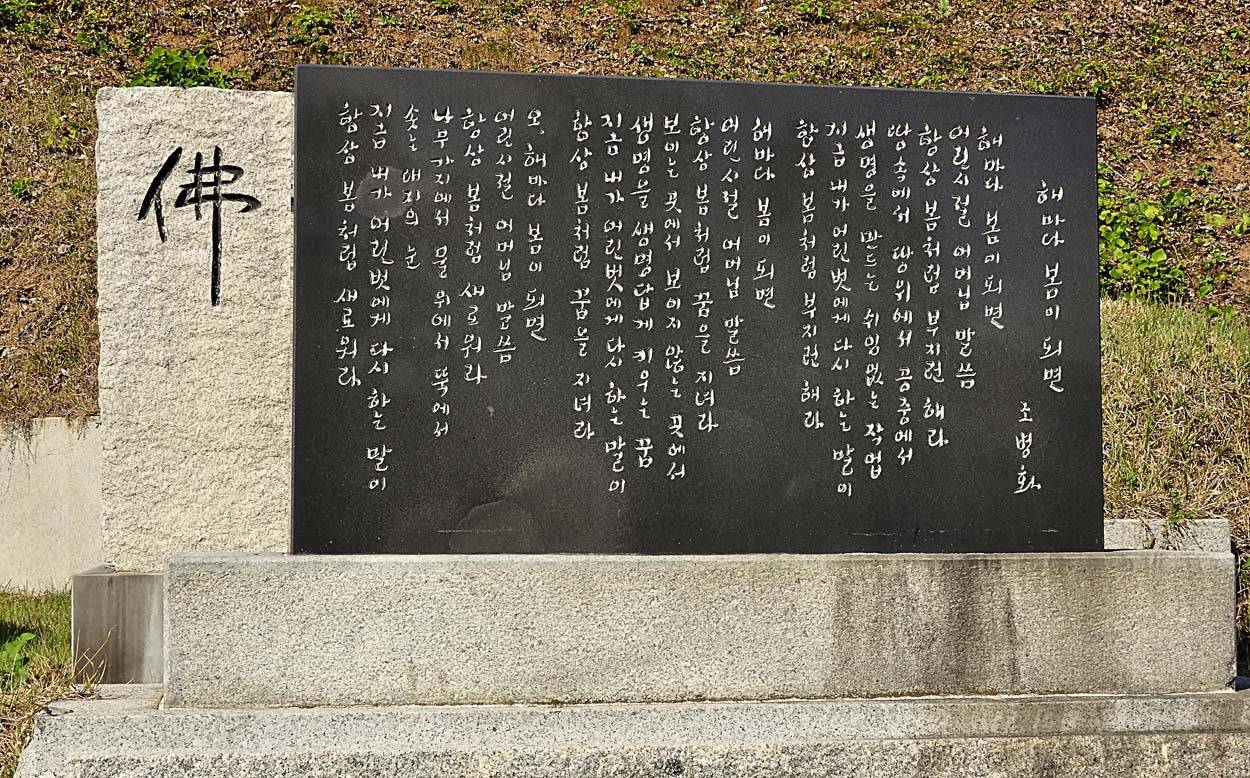 해마다 봄이 되면
조병화
해마다 봄이 되면
어린시절 어머님 말씀
항상 봄처럼 부지런 해라
땅속에서 땅위에서 공중에서
생명을 만드는 쉬임없는 작업
지금 내가 어린벗에게 다시 하는 말이
항상 봄처럼 부지런 해라
해마다 봄이 되면
어린시절 어머님 말씀
항상 봄처럼 꿈을 지녀라
보이는 곳에서 보이지 않는 곳에서
생명을 생명답게 키우는 꿈
지금 내가 어린벗에게 다시 하는 말이
항상 봄처럼 꿈을 지녀라
오, 해마다 봄이 되면
어린시절 어머님 말씀
항상 봄처럼 새로워라
나무가지에서 물위에서 뚝에서
솟는 대지의 눈
지금 내가 어린벗에게 다시 하는 말이
항상 봄처럼 새로워라
佛